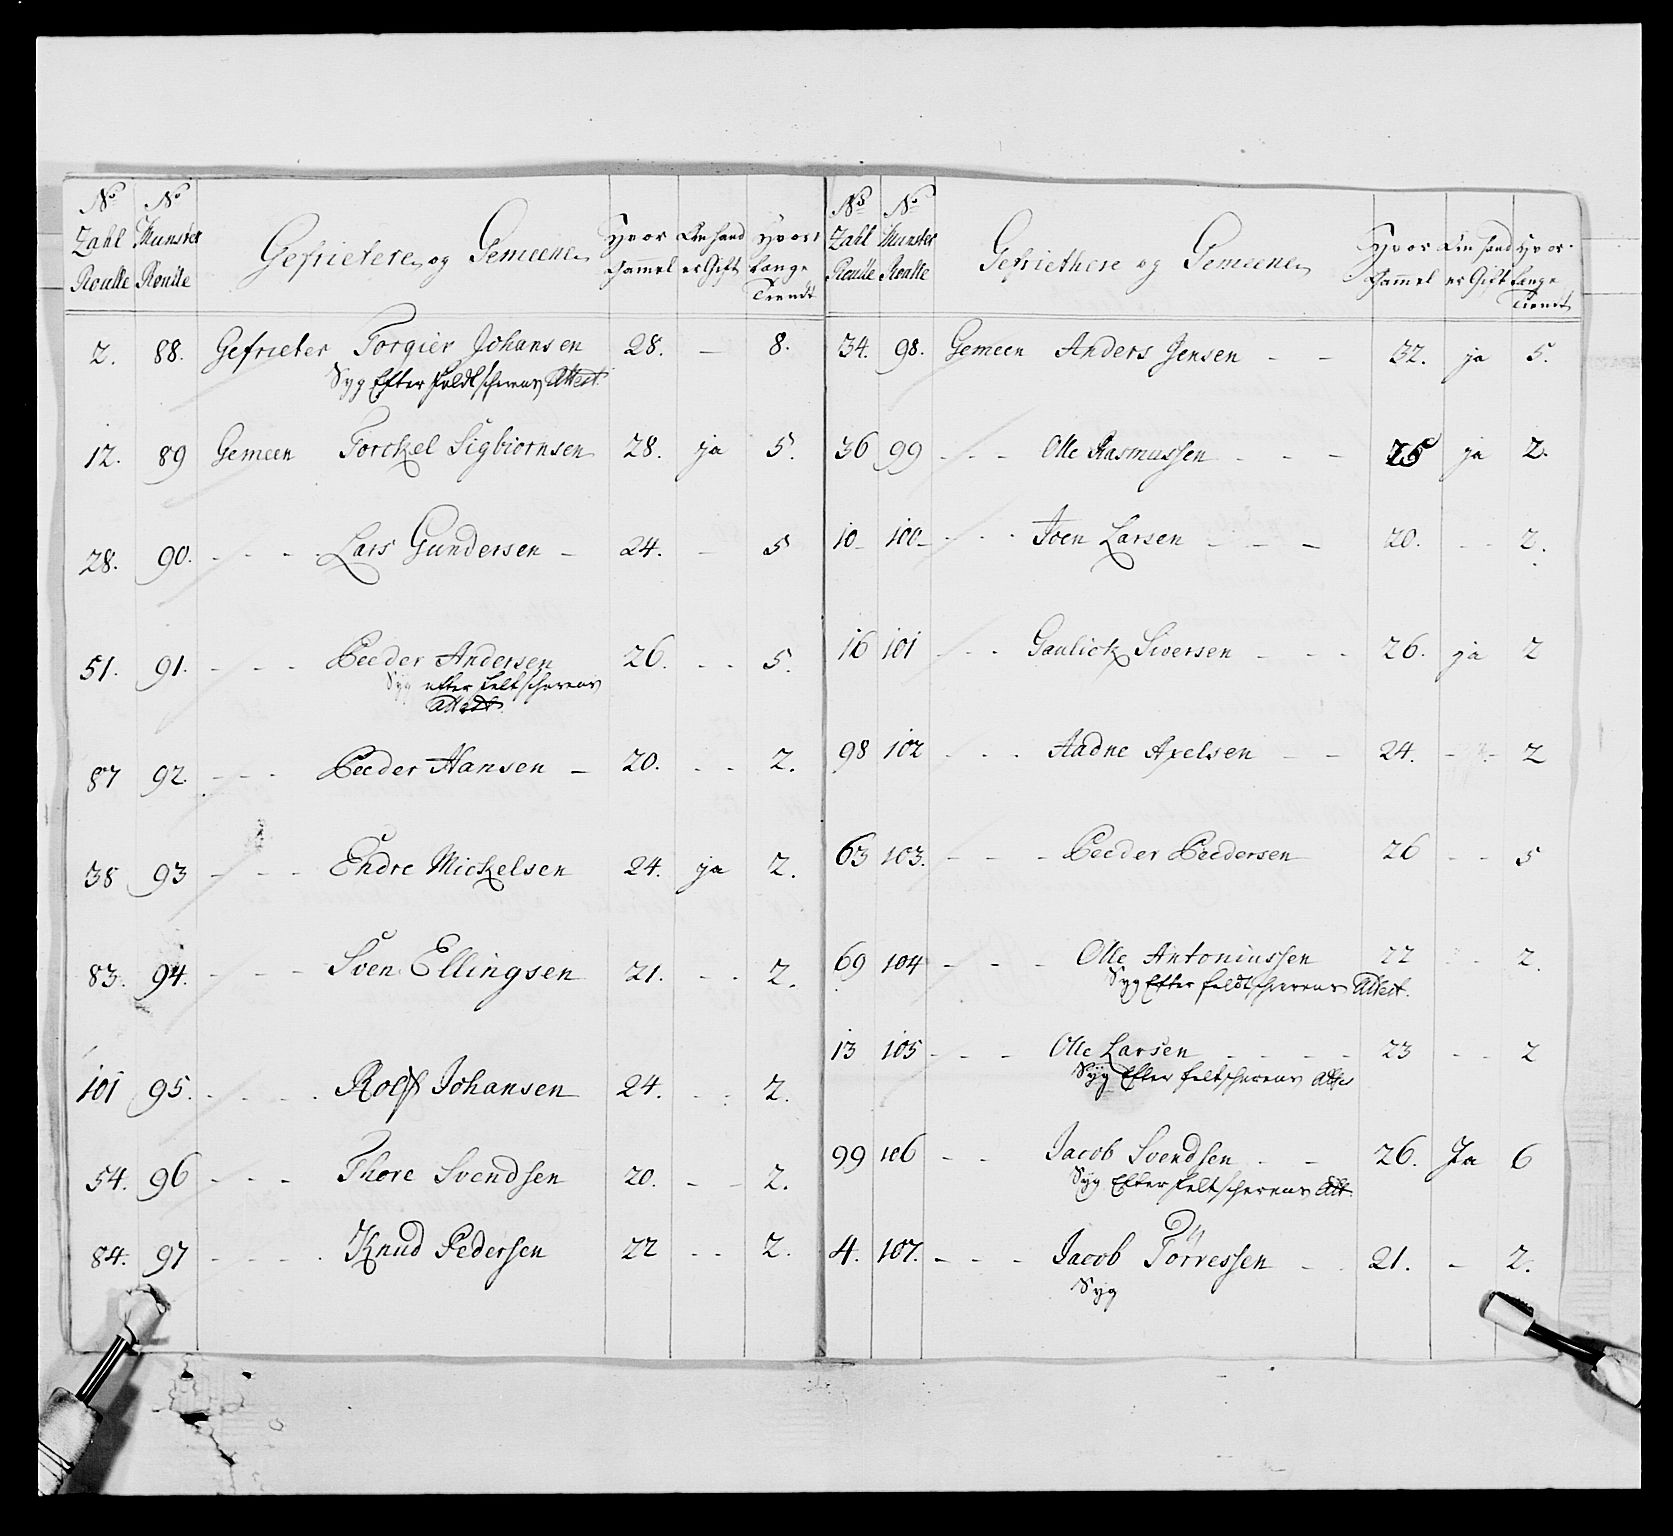 No No
Zahl Munster Gefrietere og Gemeene Hvor Om hand Hvor
Roulle Roulle Gammel er Gift Lange
Tiendt
2. 88. Gefrieter Torgier Johansen 28. — 8.
Syg Efter Feldtscherens Attest.
12. 89 Gemeen Torckel Sigbiornsen 28. ja 5.
28. 90. - - - Lars Gundersen — 24. — 5
51. 91. - - - Peeder Andersen 26. - - 5.
Syg efter Feltscherens
Attest
87 92. - - - Peeder Hansen — 20. - - 2.
38 93 - - - Endre Mickelsen 24. ja 2.
83. 94. - - - Sven Ellingsen 21. - - 2.
101 95. - - - Rolf Johansen 24. - - 2.
54. 96 - - - Thore Svendsen 20. - - 2.
84. 97 - - - Knud Pedersen 22 - - 2.
No No
Zahl Munster Gefriethere og Gemeene Hvor Om hand Hvor
Roulle Roulle Gammel er Gift Lange
Tient
34. 98. Gemeen Anders Jensen - - 32. ja 5.
36 99 - - - Olle Rasmussen - - - 25 ja 2.
10 100 - - - Joen Larsen - - - 20. - - 2.
16 101 - - - Gaulick Siversen - - - 26. ja 2
98 102 - - - Aadne Axelsen - - 24. - - 2
63 103. - - - Peeder Peedersen 26 - - 5
69 104 - - - Olle Antoniussen 22 - - 2.
Syg Efter feldtscherens Attest.
13 105 - - - Olle Larsen - - - - 23 - - 2
Syg Efter feltscherens Attes
99 106 - - Jacob Svendsen - - 26. Ja 6
Syg Efter feltscherens Att
4. 107. - - - Jacob Törressen - - 21. - 2.
Syg